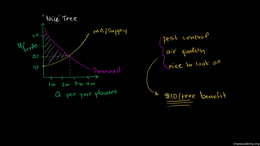 "Nice" Tree
MC/Supply
pest control
air quality
nice to look at
$10/tree benefit
Demand
1m 2m 3m 4m
Q per year planted